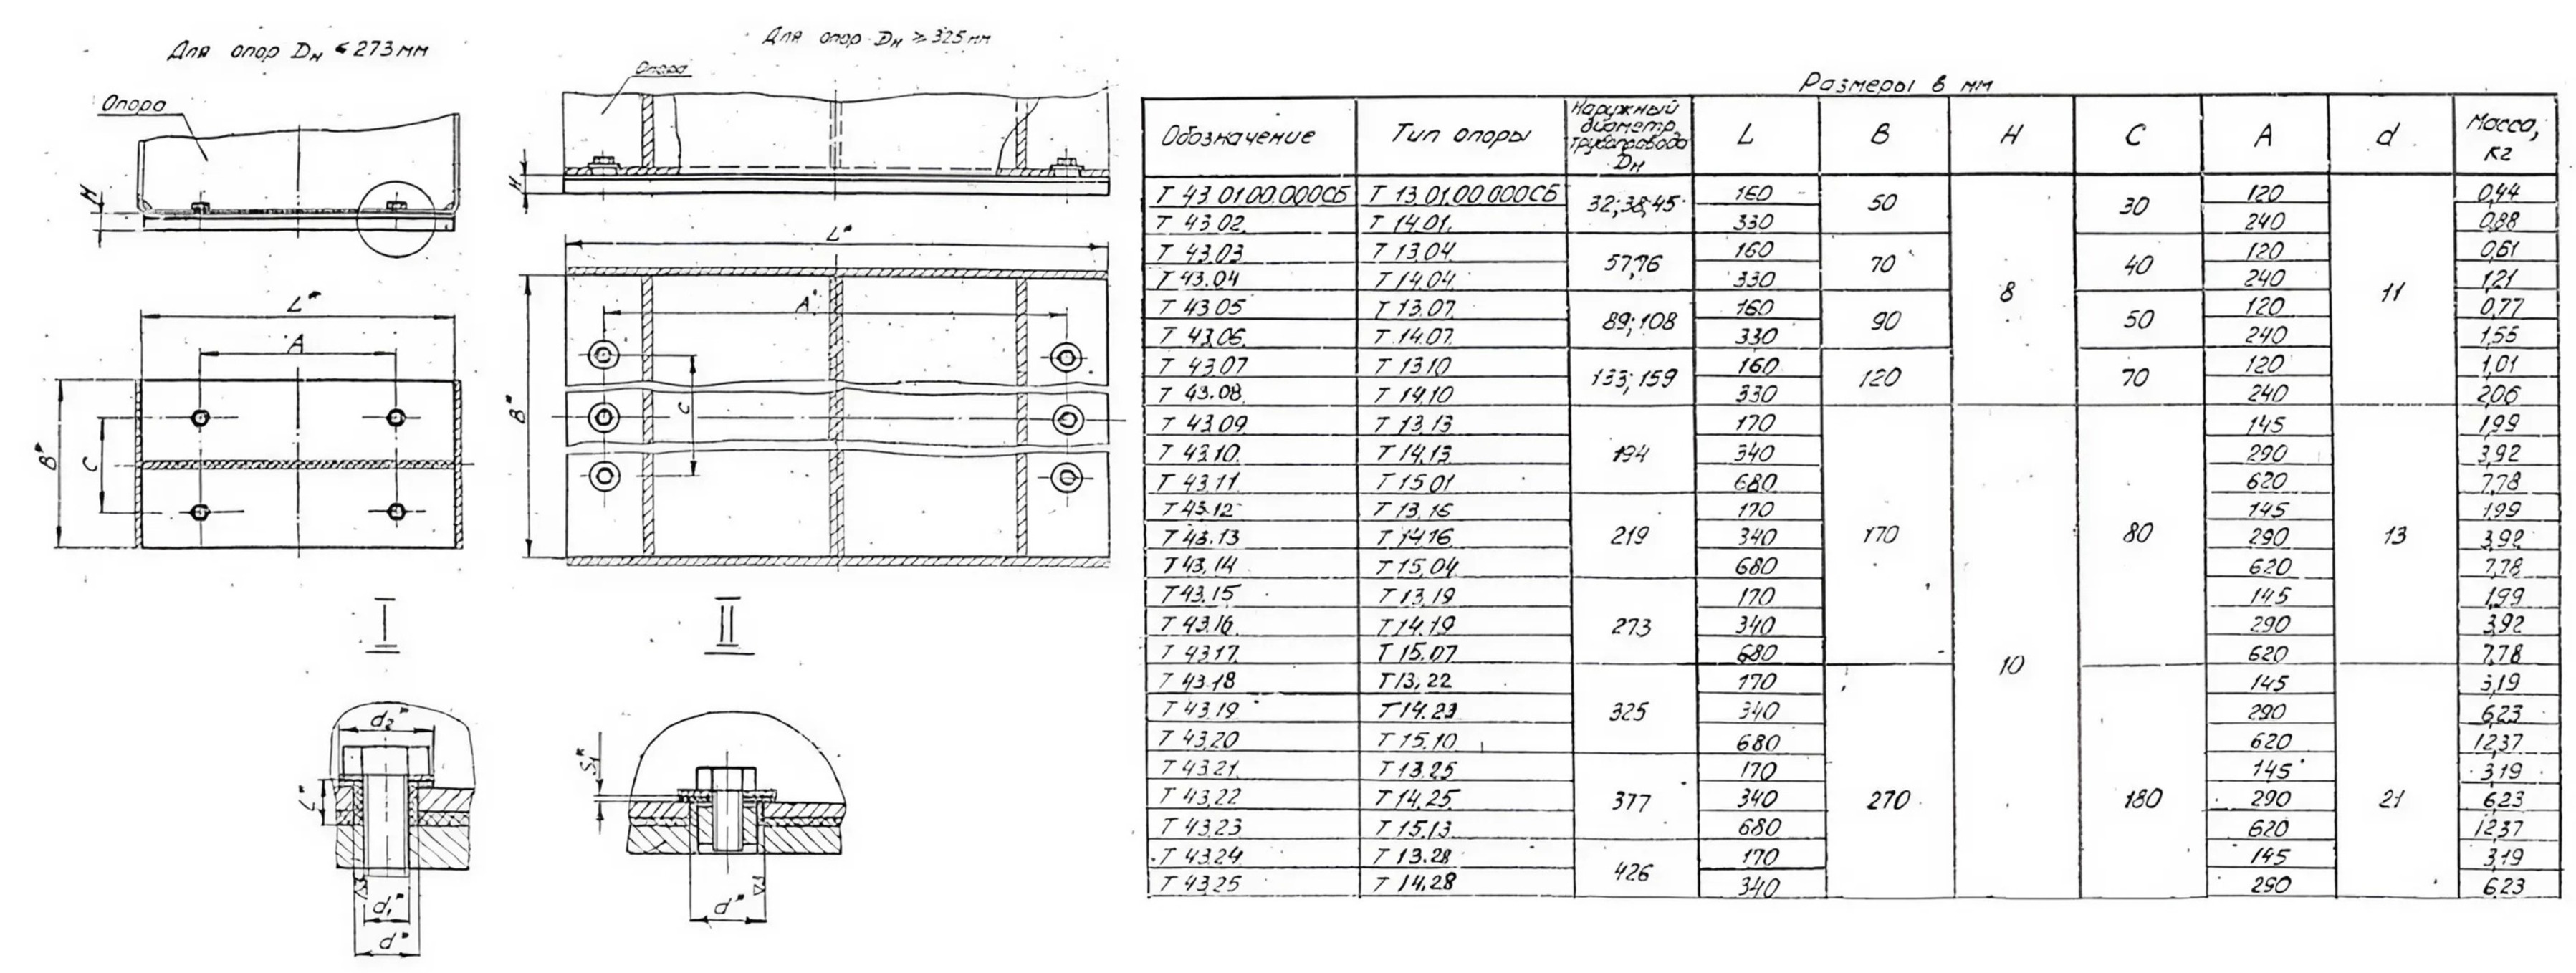 Для опор Dн ≤ 273 мм
Опора
H
L*
A
B*
C
I
d₂*
L*
d₁*
d*
Для опор Dн ≥ 325 мм
Опора
H
L*
A*
B*
C
II
S₁*
d*
Размеры в мм
Обозначение Тип опоры Наружный диаметр трубопровода Dн L B H C A d Масса, кг
Т 43.01.00.000СБ Т 13.01.00.000СБ 32; 38; 45 160 50 8 30 120 11 0,44
Т 43.02. Т 14.01. 330 240 0,88
Т 43.03 Т 13.04 57; 76 160 70 40 120 0,61
Т 43.04 Т 14.04 330 240 1,21
Т 43.05 Т 13.07 89; 108 160 90 50 120 0,77
Т 43.06 Т 14.07 330 240 1,55
Т 43.07 Т 13.10 133; 159 160 120 70 120 1,01
Т 43.08 Т 14.10 330 240 2,06
Т 43.09 Т 13.13 194 170 170 10 80 145 13 1,99
Т 43.10 Т 14.13 340 290 3,92
Т 43.11 Т 15.01 680 620 7,78
Т 43.12 Т 13.16 219 170 145 1,99
Т 43.13 Т 14.16 340 290 3,92
Т 43.14 Т 15.04 680 620 7,78
Т 43.15 Т 13.19 273 170 145 1,99
Т 43.16 Т 14.19 340 290 3,92
Т 43.17 Т 15.07 680 620 7,78
Т 43.18 Т 13.22 325 170 270 180 145 21 3,19
Т 43.19 Т 14.23 340 290 6,23
Т 43.20 Т 15.10 680 620 12,37
Т 43.21 Т 13.25 377 170 145 3,19
Т 43.22 Т 14.25 340 290 6,23
Т 43.23 Т 15.13 680 620 12,37
Т 43.24 Т 13.28 426 170 145 3,19
Т 43.25 Т 14.28 340 290 6,23